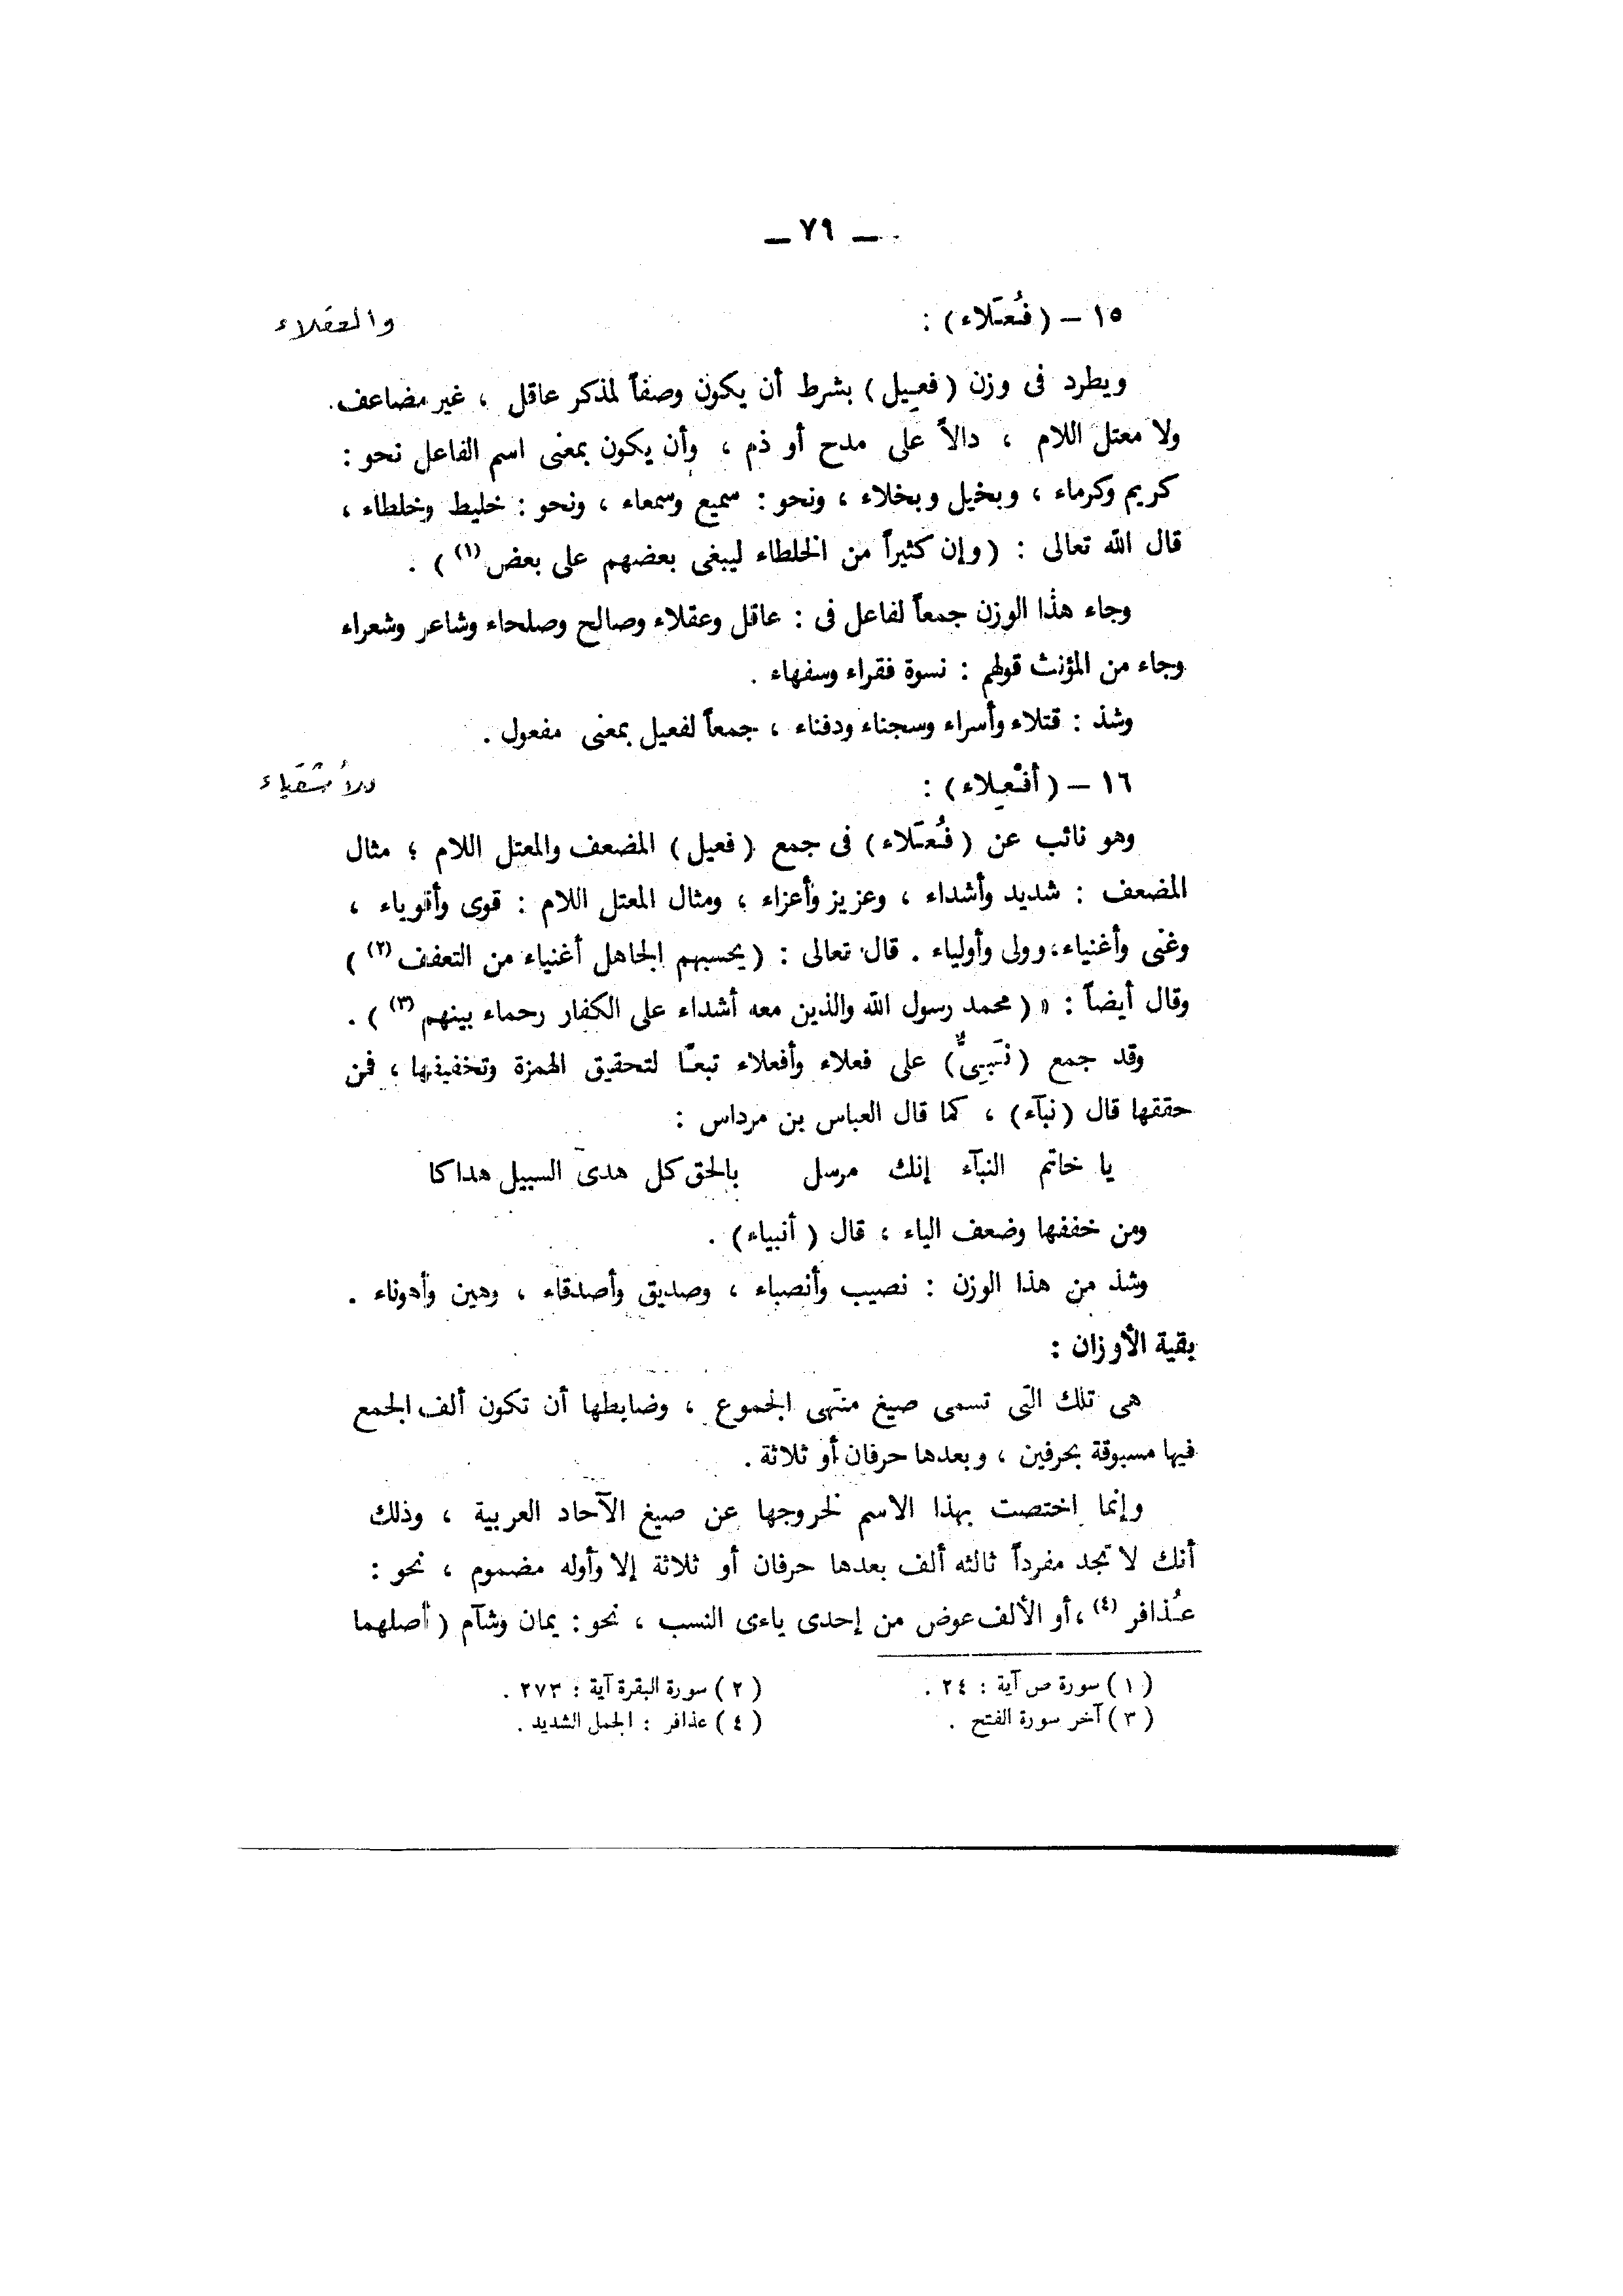 — ٧٩ —
١٥ — (فُعَلاء) :
والعقلاء
ويطرد فى وزن (فعِيل) بشرط أن يكون وصفاً لمذكر عاقل ، غير مضاعف
ولا معتل اللام ، دالاً على مدح أو ذم ، وأن يكون بمعنى اسم الفاعل نحو :
كريم وكرماء ، وبخيل وبخلاء ، ونحو : سميع وسمعاء ، ونحو : خليط وخلطاء ،
قال الله تعالى : (وإن كثيراً من الخلطاء ليبغى بعضهم على بعض (١) ) .
وجاء هذا الوزن جمعاً لفاعل فى : عاقل وعقلاء وصالح وصلحاء وشاعر وشعراء
وجاء من المؤنث قولهم : نسوة فقراء وسفهاء .
وشذ : قتلاء وأسراء وسجناء ودفناء ، جمعاً لفعيل بمعنى مفعول .
١٦ — (أفْعِلاء) :
وهو نائب عن (فُعَلاء) فى جمع (فعيل) المضعف والمعتل اللام ؛ مثال
المضعف : شديد وأشداء ، وعزيز وأعزاء ؛ ومثال المعتل اللام : قوى وأقوياء ،
وغنى وأغنياء، وولى وأولياء . قال تعالى : (يحسبهم الجاهل أغنياء من التعفف (٢) )
وقال أيضاً : « (محمد رسول الله والذين معه أشداء على الكفار رحماء بينهم (٣) ) .
وقد جمع (نَبِىٌّ) على فعلاء وأفعلاء تبعاً لتحقيق الهمزة وتخفيفها ، فمن
حققها قال (نبآء) ، كما قال العباس بن مرداس :
يا خاتم النبآء إنك مرسل بالحق كل هدى السبيل هداكا
ومن خففها وضعف الياء ، قال (أنبياء) .
وشذ من هذا الوزن : نصيب وأنصباء ، وصديق وأصدقاء ، وهين وأهوناء .
بقية الأوزان :
هى تلك التى تسمى صيغ منتهى الجموع ، وضابطها أن تكون ألف الجمع
فيها مسبوقة بحرفين ، وبعدها حرفان أو ثلاثة .
وإنما اختصت بهذا الاسم لخروجها عن صيغ الآحاد العربية ، وذلك
أنك لا تجد مفرداً ثالثه ألف بعدها حرفان أو ثلاثة إلا وأوله مضموم ، نحو :
عُذافر (٤) ، أو الألف عوض من إحدى ياءى النسب ، نحو : يمان وشآم ( أصلهما
(١) سورة ص آية : ٢٤ .
(٢) سورة البقرة آية : ٢٧٣ .
(٣) آخر سورة الفتح .
(٤) عذافر : الجمل الشديد .